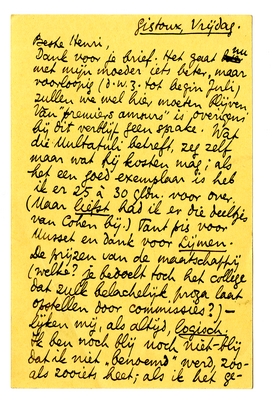 Gistoux, Vrijdag.
Beste Henri,
Dank voor je brief. Het gaat nu
met mijn moeder iets beter, maar
voorloopig (d.w.z. tot begin Juli)
zullen we wel hier moeten blijven.
Van „premiers amours" is overigens
bij dit verblijf geen sprake. Wat
die Multatuli betreft, zeg zelf
maar wat hij kosten mag; als
het een goed exemplaar is heb
ik er 25 à 30 gldn. voor over.
(Maar liefst had ik er die deeltjes
van Cohen bij.) Tant pis voor
Musset en dank voor Lijmen.
De prijzen van de maatschappij
(welke? Je bedoelt toch het college
dat zulk belachelijk proza laat
opstellen door commissies?) –
lijken mij, als altijd, logisch.
Ik ben noch blij noch niet-blij
dat ik niet „benoemd" werd, zoo-
als zooiets heet; als ik het ge-